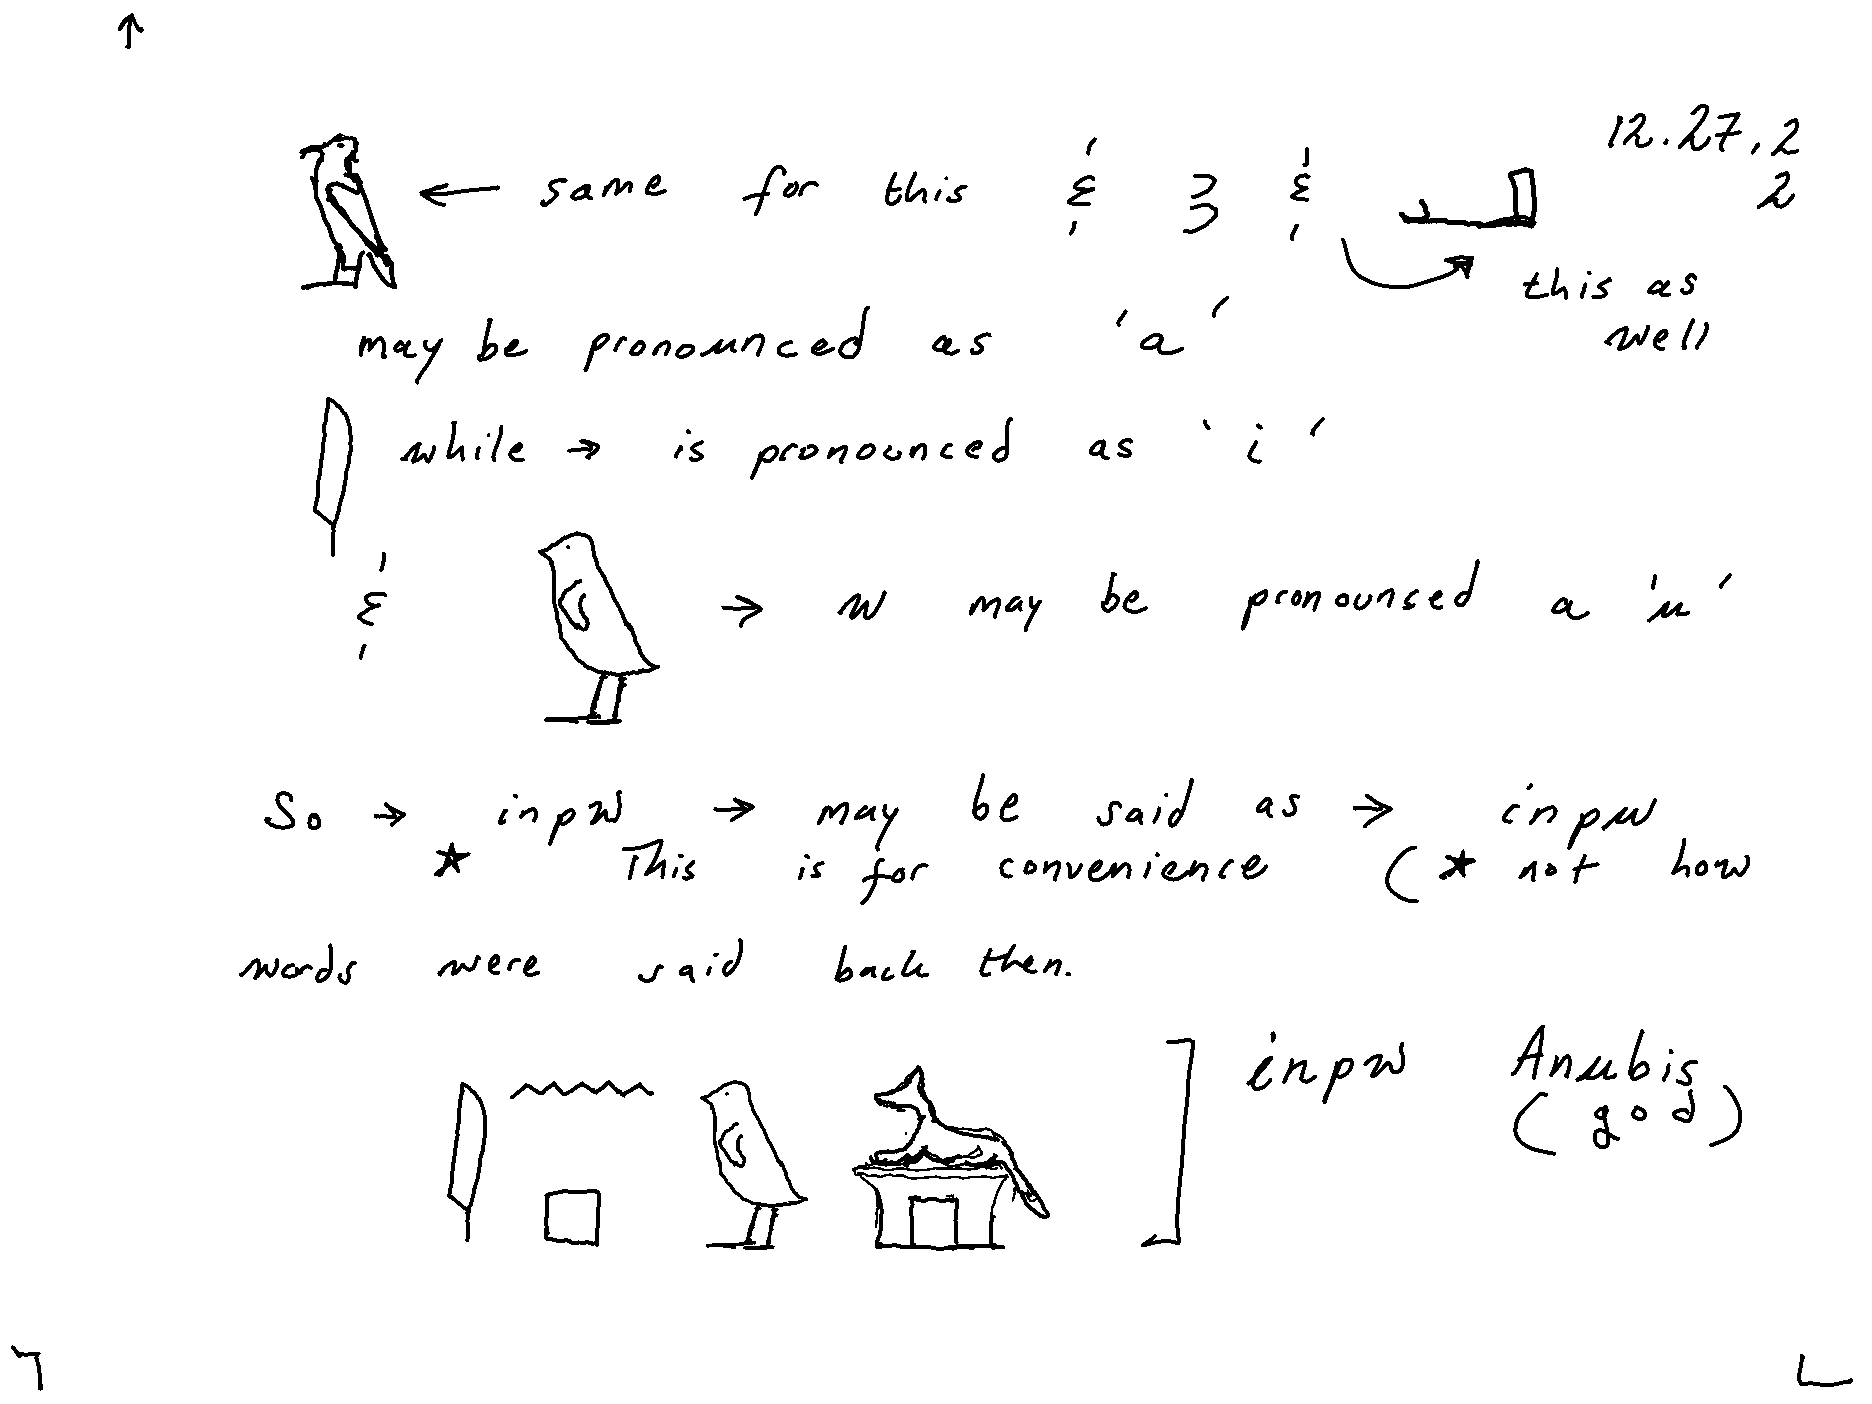 12.27,2
2
← same for this & ꜣ &
this as
well
may be pronounced as 'a'
while → is pronounced as 'i'
& → w may be pronounsed a 'u'
So → inpw → may be said as → inpu
* This is for convenience (* not how
words were said back then.
inpw Anubis
(god)